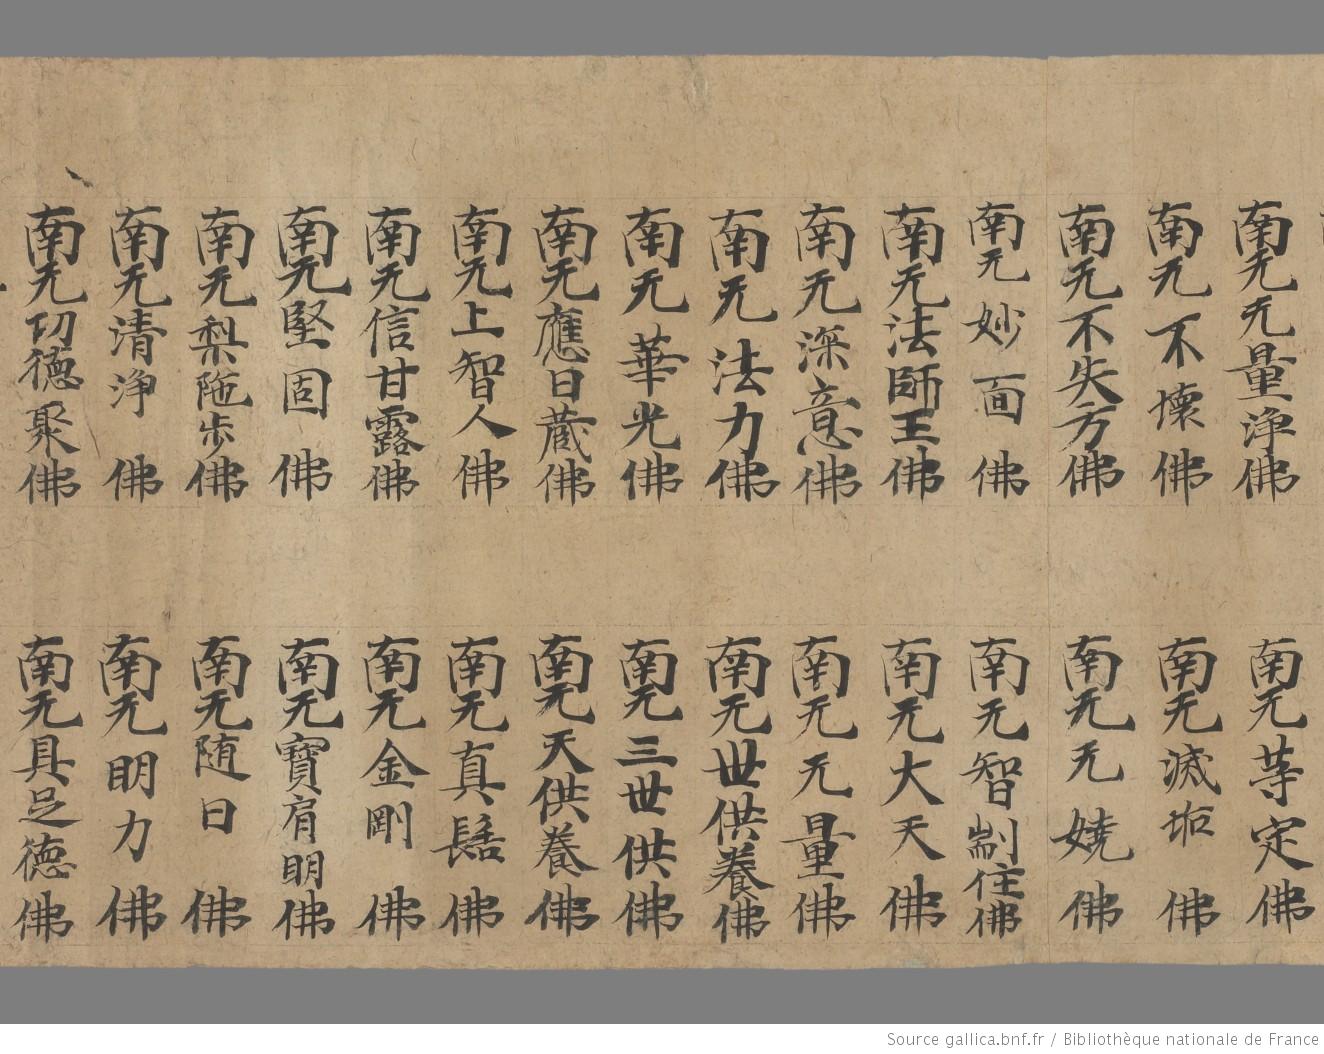 南无无量淨佛
南无不壞佛
南无不失方佛
南无妙面佛
南无法師王佛
南无深意佛
南无法力佛
南无華光佛
南无應日藏佛
南无上智人佛
南无信甘露佛
南无堅固佛
南无梨陁步佛
南无清淨佛
南无㓛德聚佛
南无等定佛
南无滅垢佛
南无无娆佛
南无智制住佛
南无大天佛
南无无量佛
南无世供養佛
南无三世供佛
南无天供養佛
南无真髻佛
南无金剛佛
南无寶肩明佛
南无随日佛
南无明力佛
南无具足德佛
Source gallica.bnf.fr / Bibliothèque nationale de France